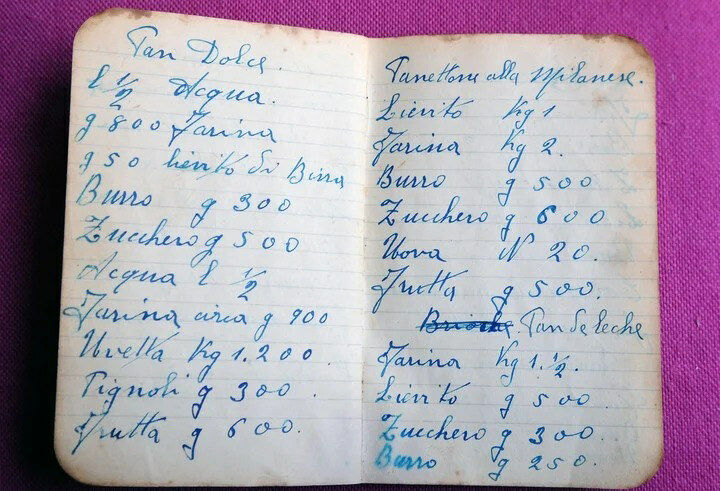 Pan Dolce.
l 1/2 Acqua.
g 800 Farina
g 50 lievito di Birra
Burro g 300
Zucchero g 500
Acqua l 1/2
Farina circa g 900
Uvetta Kg 1.200.
Pignoli g 300.
Frutta g 600.
Panettone alla Milanese.
Lievito Kg 1
Farina Kg 2.
Burro g 500
Zucchero g 600
Uova N 20.
Frutta g 500.
Brioche Pan de leche
Farina Kg 1.1/2.
Lievito g 500
Zucchero g 300.
Burro g 250.